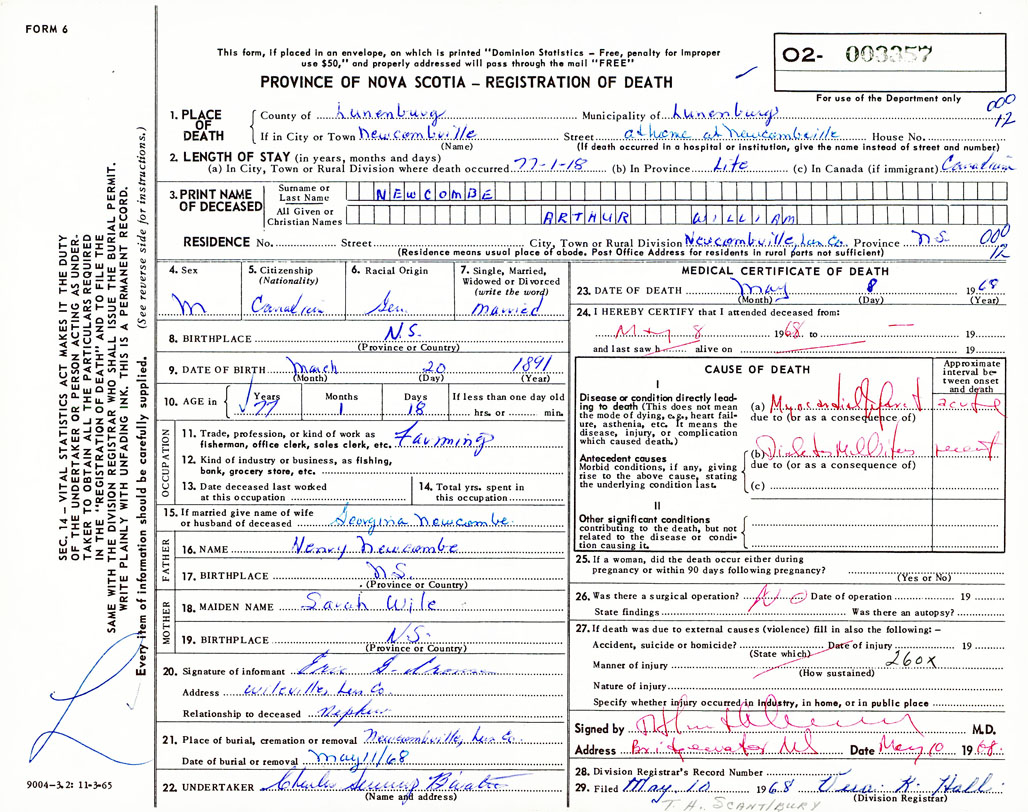 FORM 6
This form, if placed in an envelope, on which is printed "Dominion Statistics – Free, penalty for improper
use $50," and properly addressed will pass through the mail "FREE"
PROVINCE OF NOVA SCOTIA – REGISTRATION OF DEATH
02- 003357
For use of the Department only
000
12
1. PLACE OF DEATH
County of Lunenburg Municipality of Lunenburg
If in City or Town Newcombville Street at home at Newcombville House No.
(Name) (If death occurred in a hospital or institution, give the name instead of street and number)
2. LENGTH OF STAY (in years, months and days)
(a) In City, Town or Rural Division where death occurred 77-1-18 (b) In Province Life (c) In Canada (if immigrant) Canadian
3. PRINT NAME OF DECEASED
Surname or Last Name NEWCOMBE
All Given or Christian Names ARTHUR WILLIAM
RESIDENCE No. Street City, Town or Rural Division Newcombville, Lun Co. Province N.S. 000
12
(Residence means usual place of abode. Post Office Address for residents in rural parts not sufficient)
4. Sex
M
5. Citizenship
(Nationality)
Canadian
6. Racial Origin
Ger.
7. Single, Married,
Widowed or Divorced
(write the word)
Married
8. BIRTHPLACE N.S.
(Province or Country)
9. DATE OF BIRTH March 20 1891
(Month) (Day) (Year)
10. AGE in
Years Months Days If less than one day old
77 1 18 hrs. or min.
OCCUPATION
11. Trade, profession, or kind of work as
fisherman, office clerk, sales clerk, etc. Farming
12. Kind of industry or business, as fishing,
bonk, grocery store, etc.
13. Date deceased last worked
at this occupation
14. Total yrs. spent in
this occupation
15. If married give name of wife
or husband of deceased Georgina Newcombe
FATHER
16. NAME Henry Newcombe
17. BIRTHPLACE N.S.
(Province or Country)
MOTHER
18. MAIDEN NAME Sarah Wile
19. BIRTHPLACE N.S.
(Province or Country)
20. Signature of informant
Address Wileville, Lun Co.
Relationship to deceased Nephew
21. Place of burial, cremation or removal Newcombville, Lun Co.
Date of burial or removal May 11/68
22. UNDERTAKER Charles
(Name and address)
MEDICAL CERTIFICATE OF DEATH
23. DATE OF DEATH May 8 1968
(Month) (Day) (Year)
24. I HEREBY CERTIFY that I attended deceased from:
May 8 1968 to — 19
and last saw h alive on 19
CAUSE OF DEATH
Approximate
interval be-
tween onset
and death
I
Disease or condition directly lead-
ing to death (This does not mean
the mode of dying, e.g., heart fail-
ure, asthenia, etc. It means the
disease, injury, or complication
which caused death.)
(a) Myocardial Infarct acute
due to (or as a consequence of)
Antecedent causes
Morbid conditions, if any, giving
rise to the above cause, stating
the underlying condition last.
(b) Diabetes Mellitus recent
due to (or as a consequence of)
(c)
II
Other significant conditions
contributing to the death, but not
related to the disease or condi-
tion causing it.
25. If a woman, did the death occur either during
pregnancy or within 90 days following pregnancy?
(Yes or No)
26. Was there a surgical operation? No Date of operation 19
State findings Was there an autopsy?
27. If death was due to external causes (violence) fill in also the following: –
Accident, suicide or homicide? Date of injury 19
(State which)
Manner of injury 260X
(How sustained)
Nature of injury
Specify whether injury occurred in Industry, in home, or in public place
Signed by M.D.
Address Bridgewater NS Date May 10 1968.
28. Division Registrar's Record Number
29. Filed May 10 1968 K. Hall
(Division Registrar)
T. H. SCANTLBURY
SEC. 14 – VITAL STATISTICS ACT MAKES IT THE DUTY
OF THE UNDERTAKER OR PERSON ACTING AS UNDER-
TAKER TO OBTAIN ALL THE PARTICULARS REQUIRED
IN THE "REGISTRATION OF DEATH" AND TO FILE THE
SAME WITH THE DIVISION REGISTRAR WHO SHALL ISSUE THE BURIAL PERMIT.
WRITE PLAINLY WITH UNFADING INK. THIS IS A PERMANENT RECORD.
Every item of information should be carefully supplied. (See reverse side for instructions.)
9004-3.2: 11-3-65